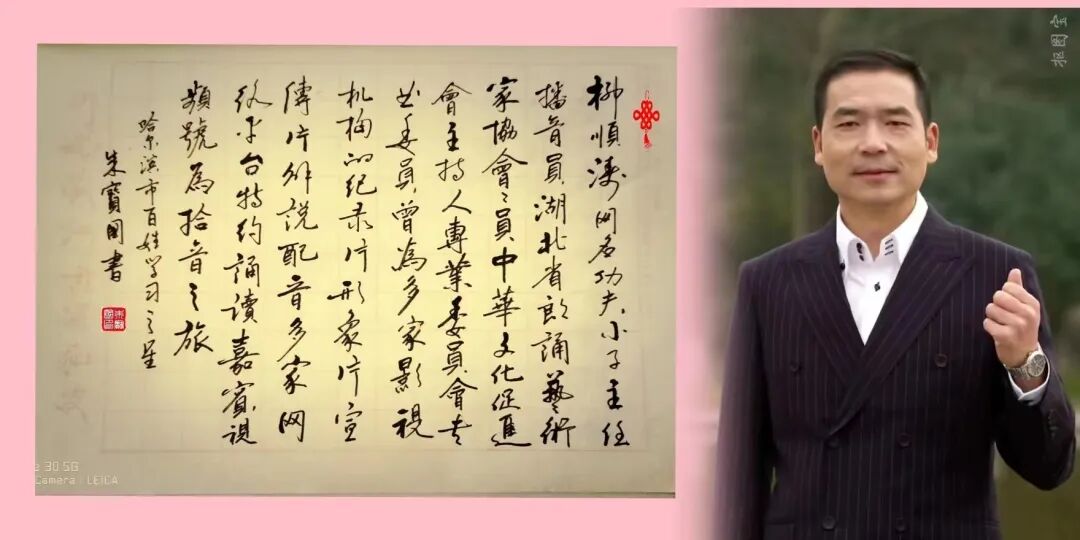 柳順涛网名功夫小子主任
播音員湖北省朗誦藝術
家協會〻員中華文化促進
會主持人專業委員會专
业委員曾為多家影視
机构的纪录片形象片宣
傳片解說配音多家网
络平台特约誦讀嘉賓視
頻號為拾音之旅
哈尔滨市百姓学习之星
朱寶国書
e 30 5G
Camera : LEICA
抠图宝